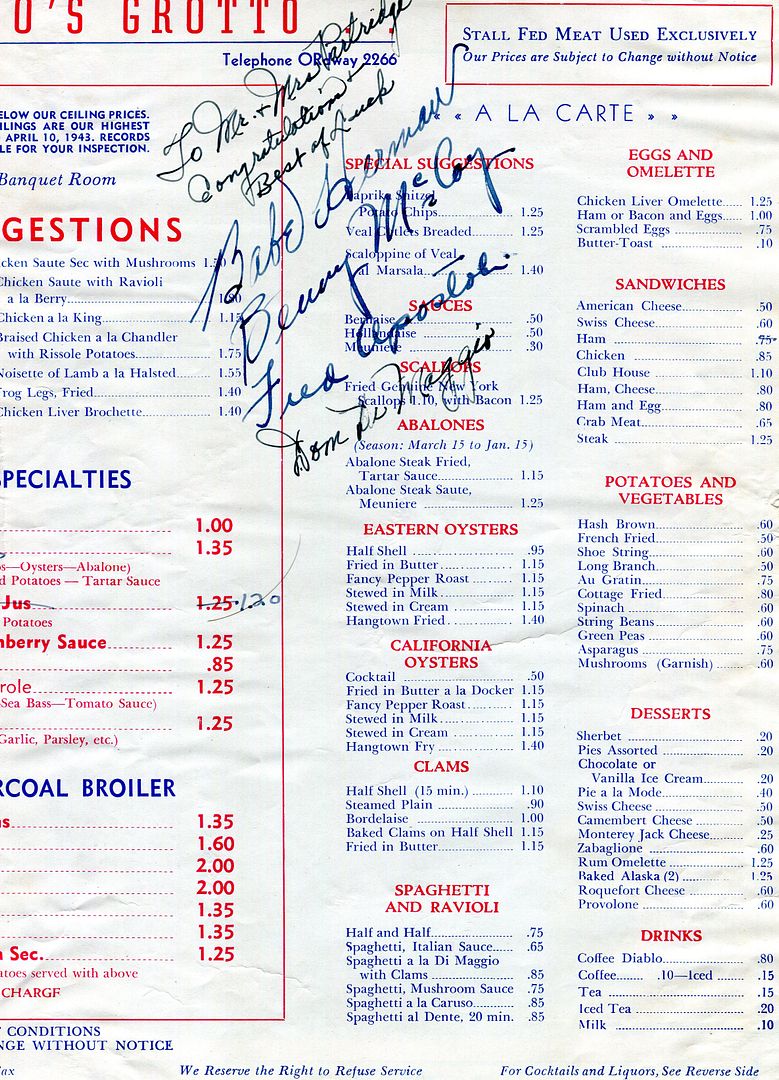 O'S GROTTO
Telephone ORdway 2266
STALL FED MEAT USED EXCLUSIVELY
Our Prices are Subject to Change without Notice
To Mr. + Mrs Partridge
Congratulations +
Best of Luck
Babe Herman
Benny McCoy
Fred Apostoli
Dom Di Maggio
ELOW OUR CEILING PRICES.
ILINGS ARE OUR HIGHEST
APRIL 10, 1943. RECORDS
LE FOR YOUR INSPECTION.
Banquet Room
GESTIONS
cken Saute Sec with Mushrooms
Chicken Saute with Ravioli
a la Berry
Chicken a la King 1.15
Braised Chicken a la Chandler
with Rissole Potatoes 1.75
Noisette of Lamb a la Halsted 1.55
rog Legs, Fried 1.40
Chicken Liver Brochette 1.40
PECIALTIES
1.00
1.35
s—Oysters—Abalone)
d Potatoes — Tartar Sauce
Jus 1.25 1.20
Potatoes
nberry Sauce 1.25
.85
role 1.25
Sea Bass—Tomato Sauce)
1.25
Garlic, Parsley, etc.)
RCOAL BROILER
ns 1.35
1.60
2.00
2.00
1.35
1.35
n Sec. 1.25
atoes served with above
CHARGE
CONDITIONS
NGE WITHOUT NOTICE
« A LA CARTE » »
SPECIAL SUGGESTIONS
Paprika Shitzel
Potato Chips 1.25
Veal Cutlets Breaded 1.25
Scaloppine of Veal
al Marsala 1.40
SAUCES
Bernaise .50
Hollandaise .50
Meuniere .30
SCALLOPS
Fried Genuine New York
Scallops 1.10, with Bacon 1.25
ABALONES
(Season: March 15 to Jan. 15)
Abalone Steak Fried,
Tartar Sauce 1.15
Abalone Steak Saute,
Meuniere 1.25
EASTERN OYSTERS
Half Shell .95
Fried in Butter 1.15
Fancy Pepper Roast 1.15
Stewed in Milk 1.15
Stewed in Cream 1.15
Hangtown Fried 1.40
CALIFORNIA
OYSTERS
Cocktail .50
Fried in Butter a la Docker 1.15
Fancy Pepper Roast 1.15
Stewed in Milk 1.15
Stewed in Cream 1.15
Hangtown Fry 1.40
CLAMS
Half Shell (15 min.) 1.10
Steamed Plain .90
Bordelaise 1.00
Baked Clams on Half Shell 1.15
Fried in Butter 1.15
SPAGHETTI
AND RAVIOLI
Half and Half .75
Spaghetti, Italian Sauce .65
Spaghetti a la Di Maggio
with Clams .85
Spaghetti, Mushroom Sauce .75
Spaghetti a la Caruso .85
Spaghetti al Dente, 20 min. .85
EGGS AND
OMELETTE
Chicken Liver Omelette 1.25
Ham or Bacon and Eggs 1.00
Scrambled Eggs .75
Butter-Toast .10
SANDWICHES
American Cheese .50
Swiss Cheese .60
Ham .75
Chicken .85
Club House 1.10
Ham, Cheese .80
Ham and Egg .80
Crab Meat .65
Steak 1.25
POTATOES AND
VEGETABLES
Hash Brown .60
French Fried .50
Shoe String .60
Long Branch .50
Au Gratin .75
Cottage Fried .80
Spinach .60
String Beans .60
Green Peas .60
Asparagus .75
Mushrooms (Garnish) .60
DESSERTS
Sherbet .20
Pies Assorted .20
Chocolate or
Vanilla Ice Cream .20
Pie a la Mode .40
Swiss Cheese .50
Camembert Cheese .50
Monterey Jack Cheese .25
Zabaglione .60
Rum Omelette 1.25
Baked Alaska (2) 1.25
Roquefort Cheese .60
Provolone .60
DRINKS
Coffee Diablo .80
Coffee .10—Iced .15
Tea .15
Iced Tea .20
Milk .10
We Reserve the Right to Refuse Service
For Cocktails and Liquors, See Reverse Side